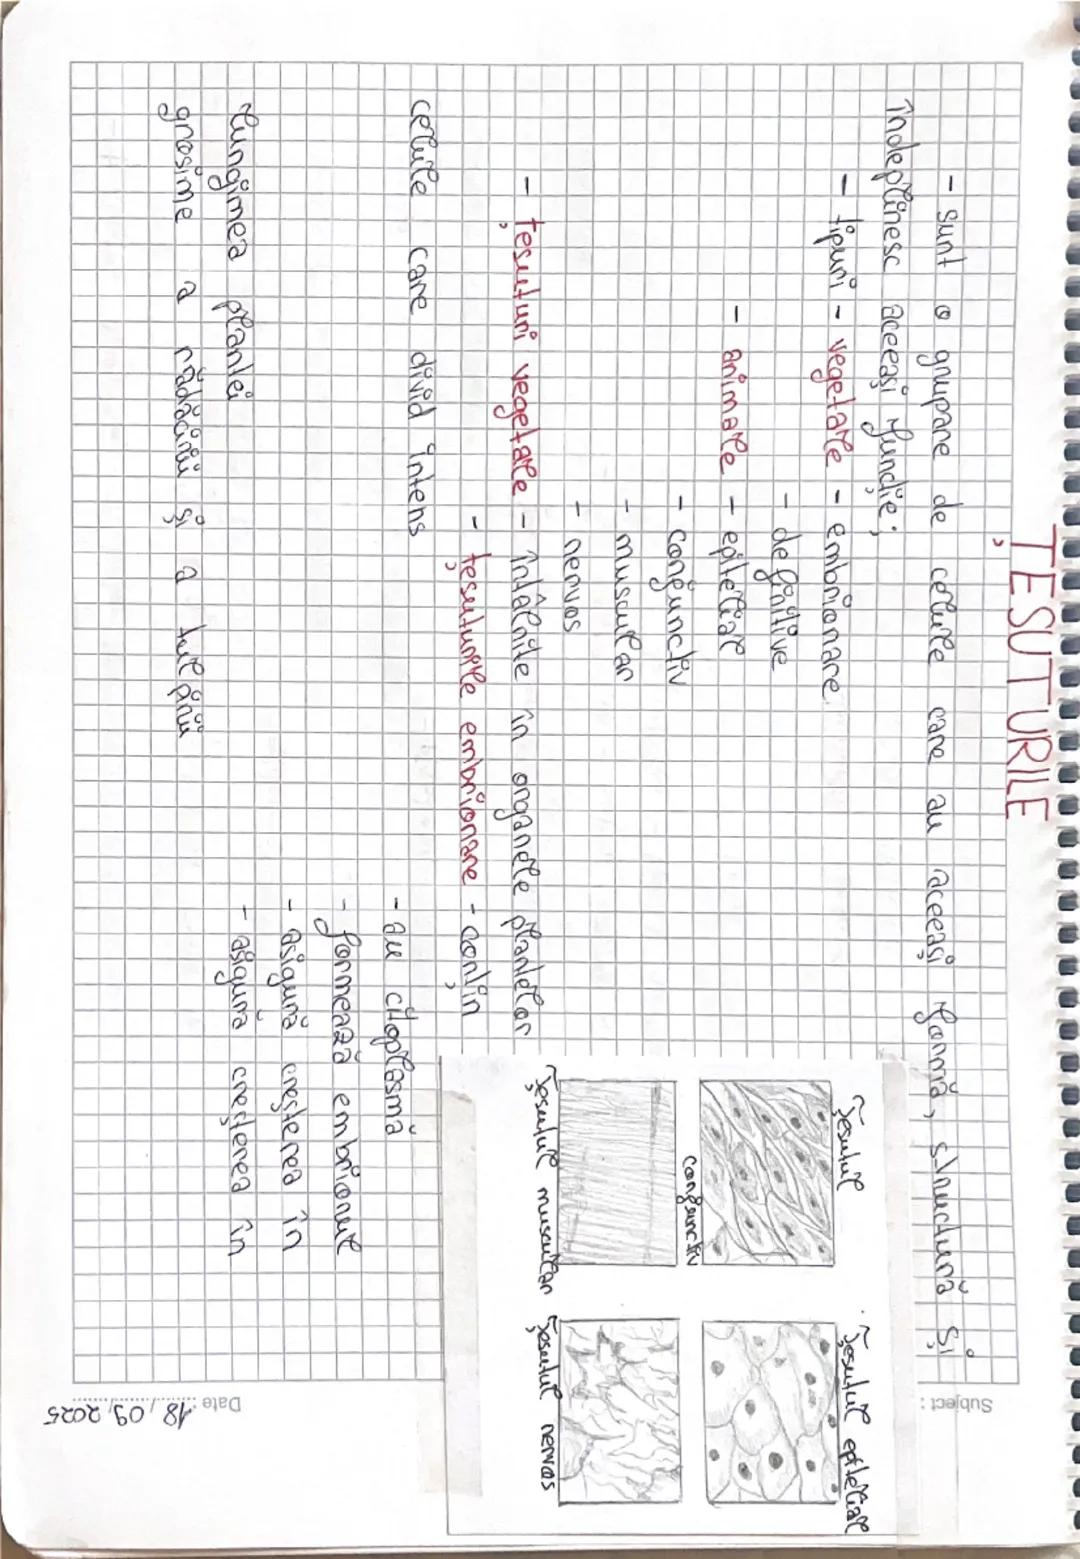 ȚESUTURILE
- sunt o grupare de celule care au aceeași formă, structură și
îndeplinesc aceeași funcție;
- tipuri - vegetale - embrionare
- definitive
- animale - epitelial
- conjunctiv
- muscular
- nervos
- țesuturi vegetale - întâlnite în organele plantelor
- țesuturile embrionare - conțin
celule care divid intens
- au citoplasmă
- formează embrionul
- asigură creșterea în
lungimea plantei
- asigură creșterea în
grosime a rădăcinii și a tulpinii
Țesutul
conjunctiv
Țesutul epitelial
Țesutul muscular
Țesutul nervos
Subject :
Date : 18.09.2025